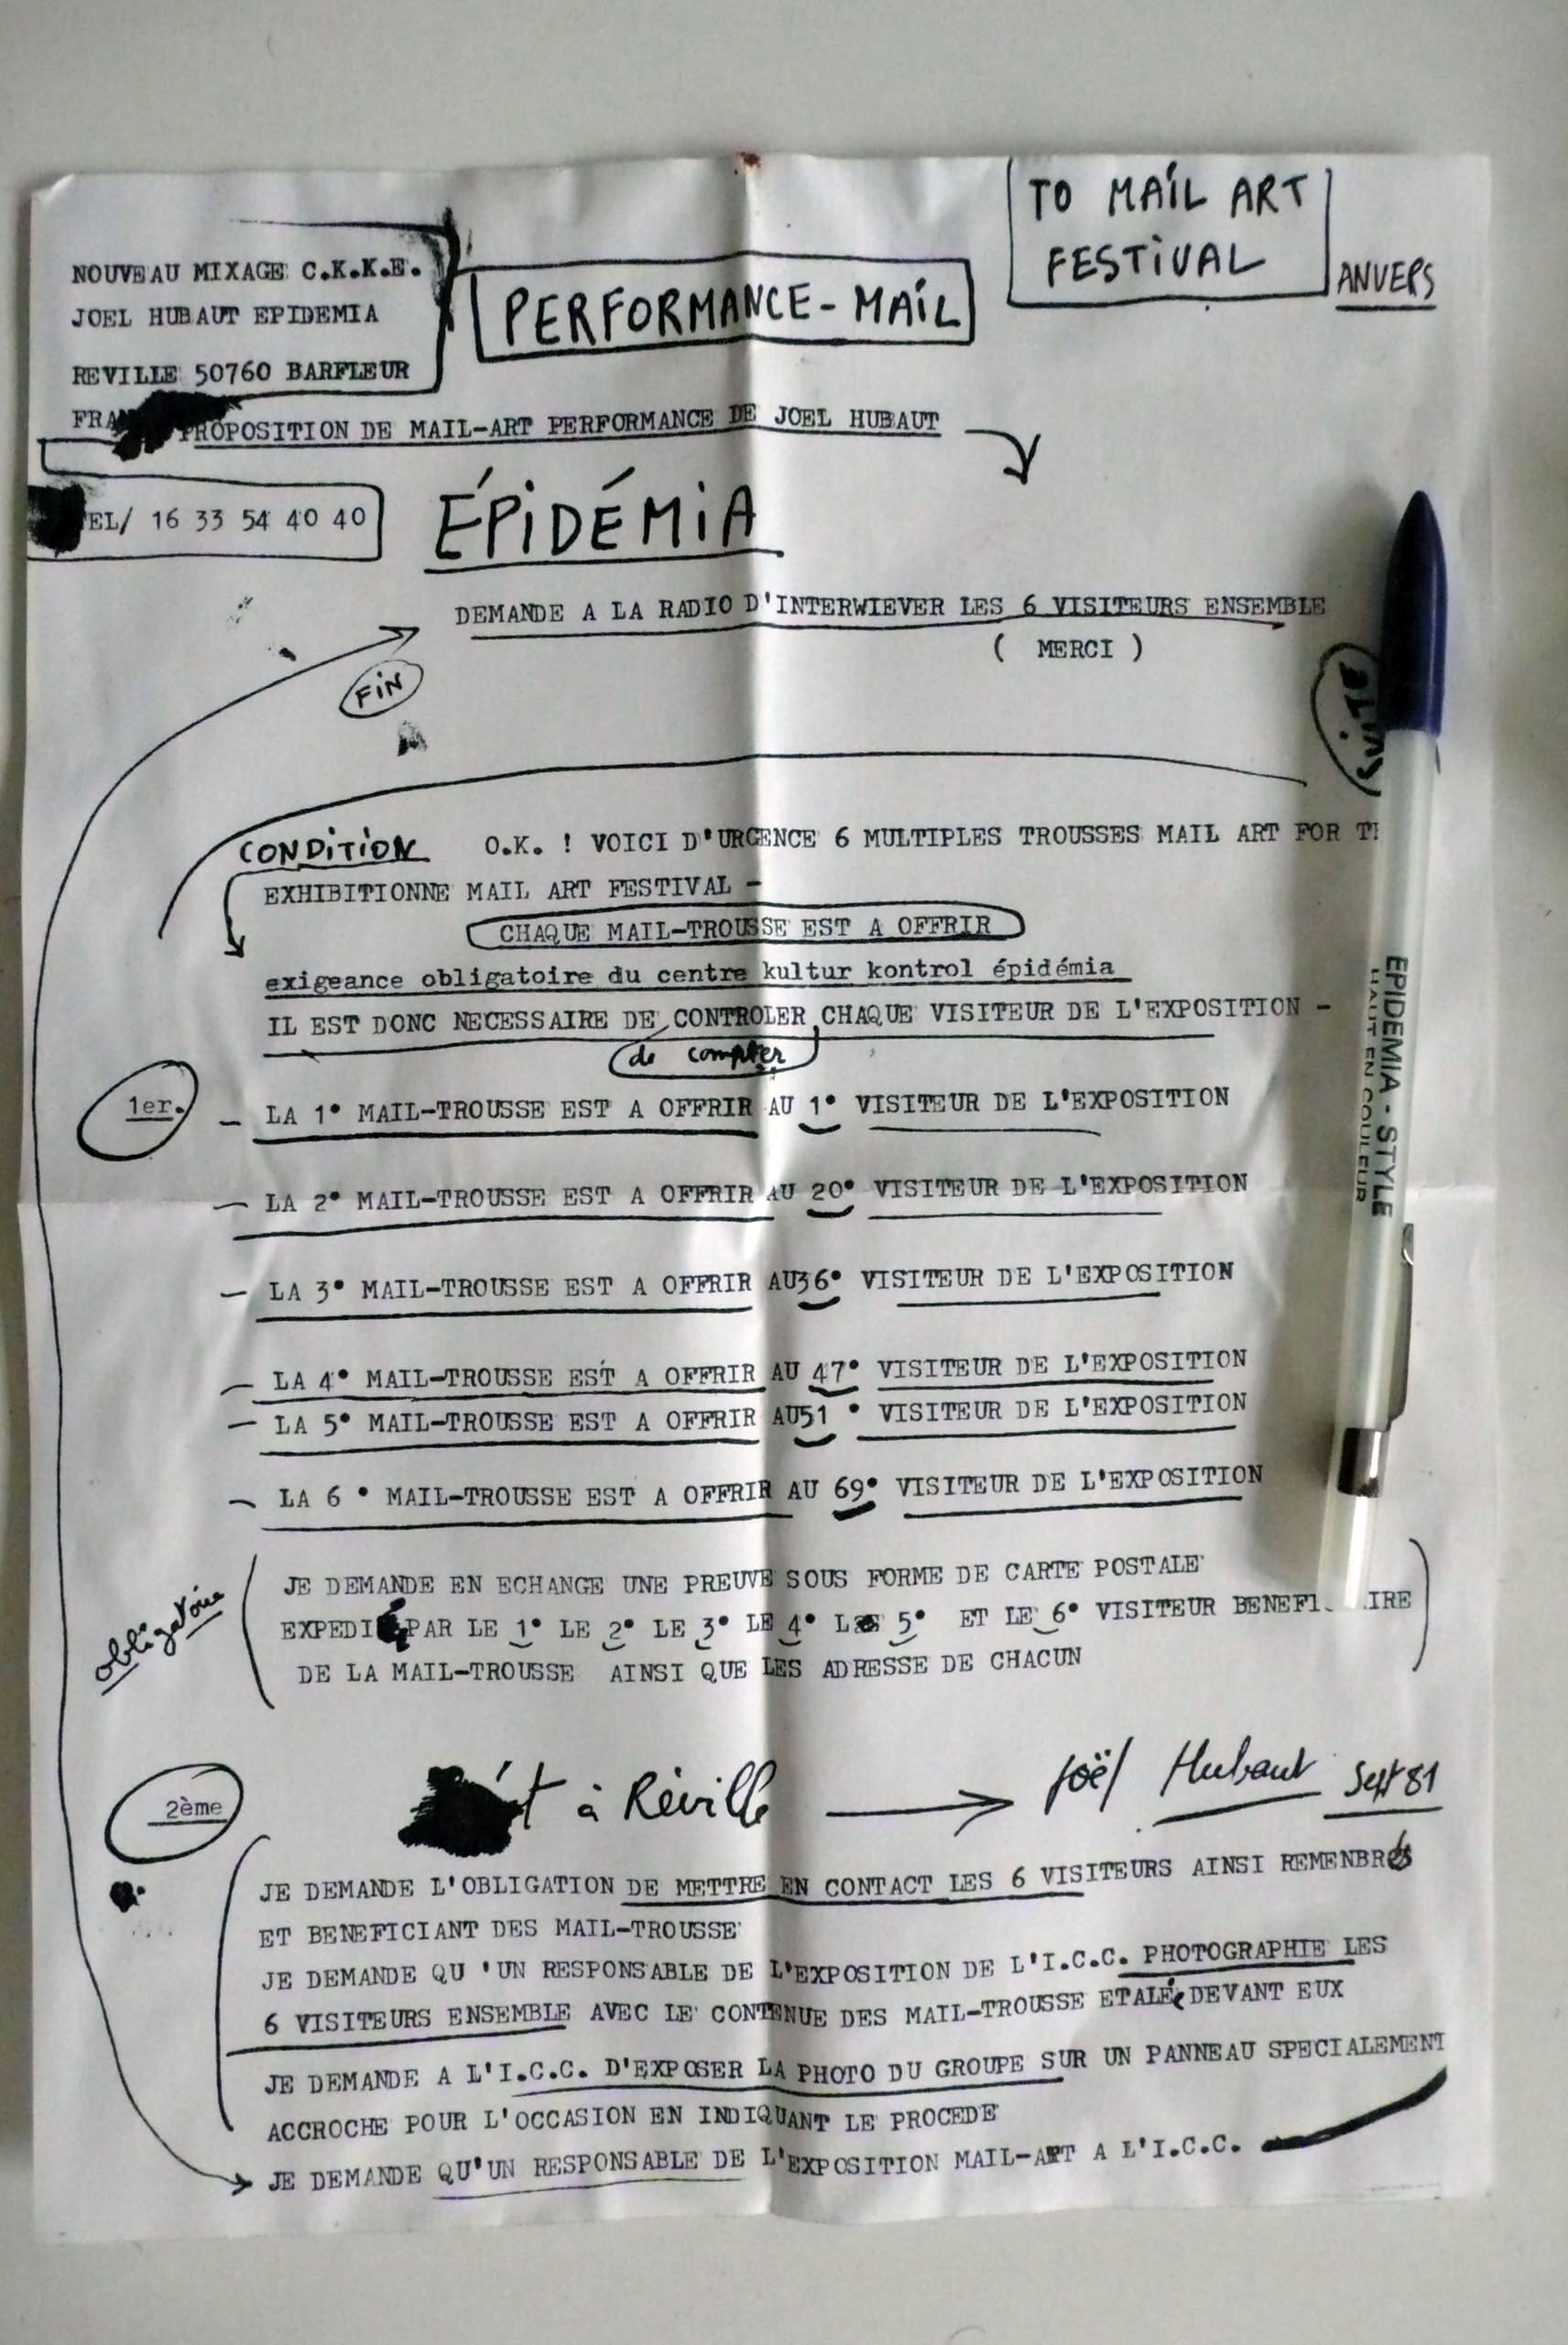 TO MAIL ART
FESTIVAL
ANVERS
NOUVEAU MIXAGE C.K.K.E.
JOEL HUBAUT EPIDEMIA
REVILLE 50760 BARFLEUR
PERFORMANCE-MAIL
PROPOSITION DE MAIL-ART PERFORMANCE DE JOEL HUBAUT
EL/ 16 33 54 40 40
ÉPIDÉMIA
DEMANDE A LA RADIO D'INTERWIEVER LES 6 VISITEURS ENSEMBLE
( MERCI )
FIN
SUITE
CONDITION O.K. ! VOICI D'URGENCE 6 MULTIPLES TROUSSES MAIL ART FOR
EXHIBITIONNE MAIL ART FESTIVAL -
CHAQUE MAIL-TROUSSE EST A OFFRIR
exigeance obligatoire du centre kultur kontrol épidémia
IL EST DONC NECESSAIRE DE CONTROLER CHAQUE VISITEUR DE L'EXPOSITION -
de compter
1er.
- LA 1° MAIL-TROUSSE EST A OFFRIR AU 1° VISITEUR DE L'EXPOSITION
- LA 2° MAIL-TROUSSE EST A OFFRIR AU 20° VISITEUR DE L'EXPOSITION
- LA 3° MAIL-TROUSSE EST A OFFRIR AU36° VISITEUR DE L'EXPOSITION
- LA 4° MAIL-TROUSSE EST A OFFRIR AU 47° VISITEUR DE L'EXPOSITION
- LA 5° MAIL-TROUSSE EST A OFFRIR AU51 ° VISITEUR DE L'EXPOSITION
- LA 6 ° MAIL-TROUSSE EST A OFFRIR AU 69° VISITEUR DE L'EXPOSITION
EPIDEMIA - STYLE
HAUT EN COULEUR
obligatoire
JE DEMANDE EN ECHANGE UNE PREUVE SOUS FORME DE CARTE POSTALE
EXPEDIÉ PAR LE 1° LE 2° LE 3° LE 4° LE 5° ET LE 6° VISITEUR
DE LA MAIL-TROUSSE AINSI QUE LES ADRESSE DE CHACUN
2ème
à Réville Joël Hubaut Sept 81
JE DEMANDE L'OBLIGATION DE METTRE EN CONTACT LES 6 VISITEURS AINSI REMENBRÉS
ET BENEFICIANT DES MAIL-TROUSSE
JE DEMANDE QU 'UN RESPONSABLE DE L'EXPOSITION DE L'I.C.C. PHOTOGRAPHIE LES
6 VISITEURS ENSEMBLE AVEC LE CONTENUE DES MAIL-TROUSSE ETALÉ DEVANT EUX
JE DEMANDE A L'I.C.C. D'EXPOSER LA PHOTO DU GROUPE SUR UN PANNEAU SPECIALEMENT
ACCROCHE POUR L'OCCASION EN INDIQUANT LE PROCEDE
JE DEMANDE QU'UN RESPONSABLE DE L'EXPOSITION MAIL-ART A L'I.C.C.